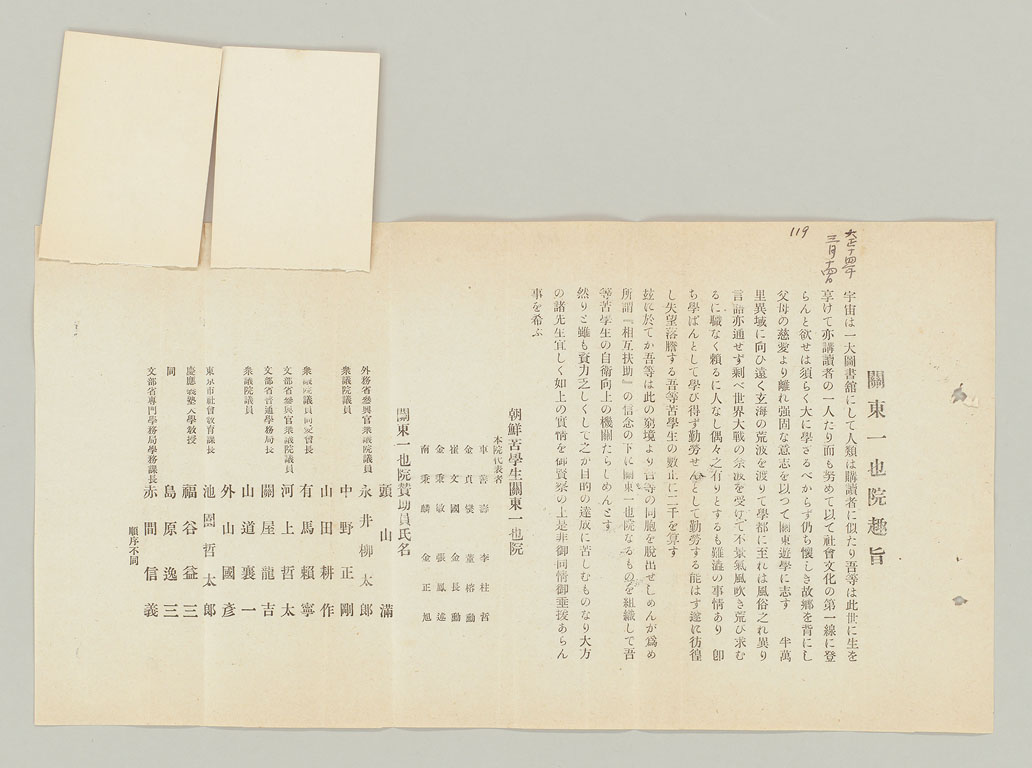 119
大正十四年
三月十四日
關東一也院趣旨
宇宙は一大圖書舘にして人類は購讀者に似たり吾等は此世に生を
享けて亦講讀者の一人たり而も努めて以て社會文化の第一線に登
らんと欲せは須らく大に學さるべからず仍ち懷しき故郷を背にし
父母の慈愛より離れ强固な意志を以つて關東遊學に志す 半萬
里異域に向ひ遠く玄海の荒波を渡りて學都に至れは風俗之れ異り
言語亦通せず剩へ世界大戰の余波を受けて不景氣風吹き荒び求む
るに職なく賴るに人なし偶々之有りとするも難澁の事情あり 卽
ち學ばんとして學び得ず勤勞せんとして勤勞する能はず遂に彷徨
し失望落膽する吾等苦學生の數正に二千を算す
玆に於てか吾等は此の窮境より吾等の同胞を脫出せしめんが爲め
所謂『相互扶助』の信念の下に關東一也院なるものを組織して吾
等苦學生の自衛向上の機關たらしめんとす
然りと雖も資力乏しくして之か目的の達成に苦しむものなり大方
の諸先生宜しく如上の實情を御賢察の上是非御同情御垂援あらん
事を希ふ
朝鮮苦學生關東一也院
本院代表者
車善壽 李柱哲
金貞燮 董榕勳
崔文國 金長勳
金秉敏 張鳳述
南秉麟 金正旭
關東一也院賛助員氏名
頭山滿
外務省參與官衆議院議員 永井柳太郎
衆議院議員 中野正剛
山田耕作
衆議院議員同愛會長 有馬賴寧
文部省參與官衆議院議員 河上哲太
文部省普通學務局長 關屋龍吉
衆議院議員 山道襄一
外山國彥
東京市社會敎育課長 池園哲太郎
慶應義塾大學敎授 福谷益三
同 島原逸三
文部省專門學務局學務課長 赤間信義
順序不同